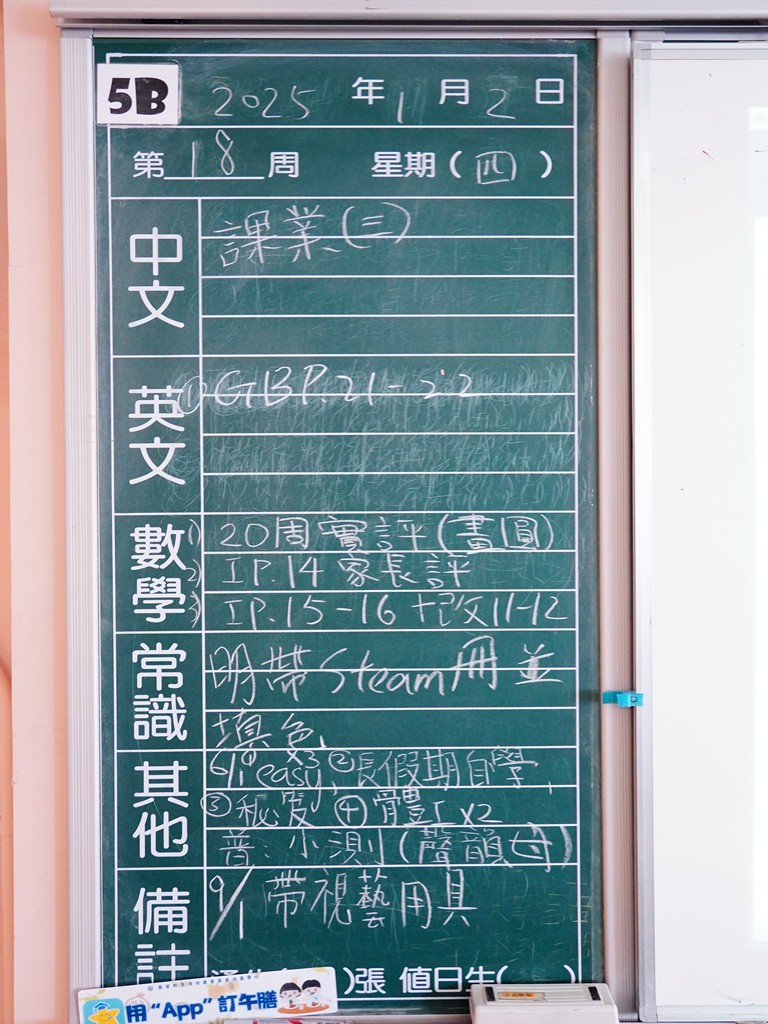 5B 2025 年 1 月 2 日
第 18 周 星期 ( 四 )
中文 課業(三)
英文 ① GBP.21-22
數學 1) 20周實評(畫圓)
2) IP.14 家長評
3) IP.15-16 + 改11-12
常識 明帶Steam冊並
填色
其他 6/1 ① easy x3, ② 長假期自學,
③ ④ 體 x2
普、小測(聲韻母)
備註 9/1 帶視藝用具
)張 值日生( )
用 "App" 訂午膳